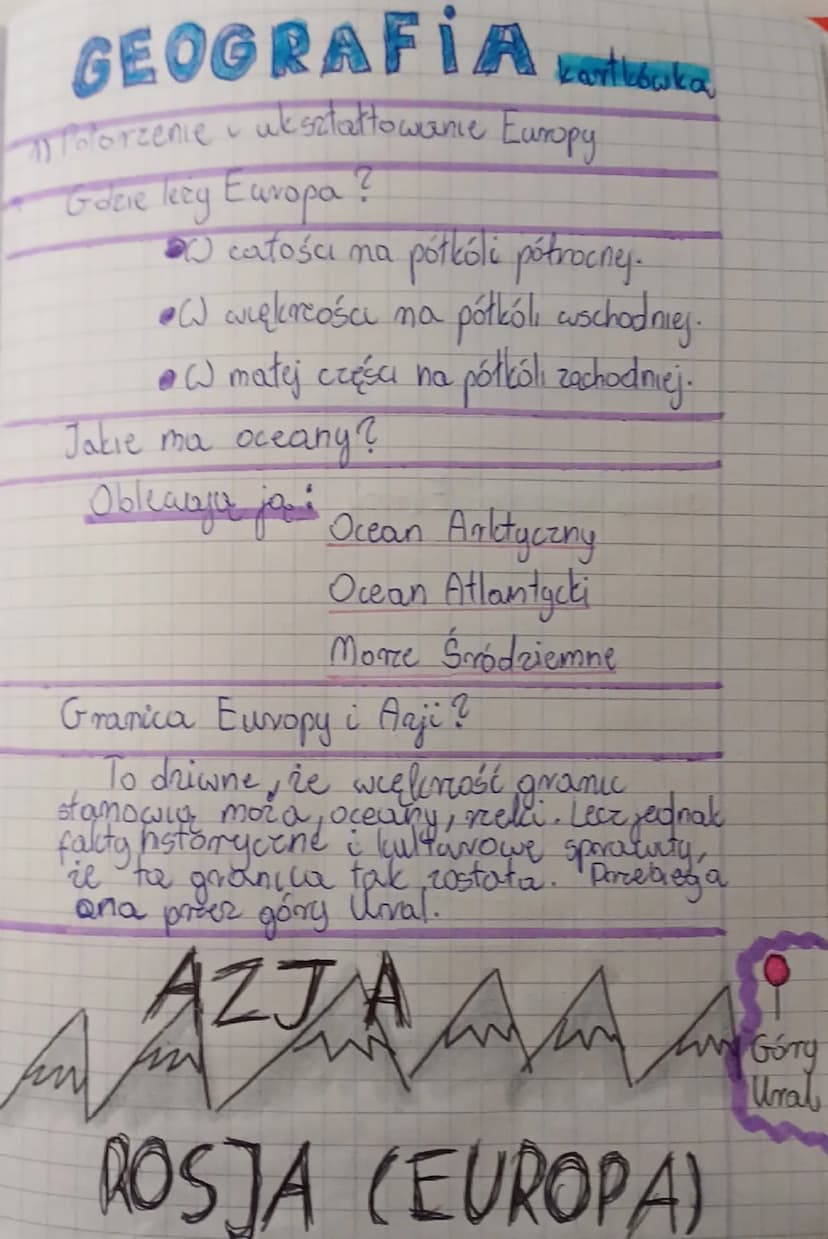 GEOGRAFiA kartkówka
1) Położenie i ukształtowanie Europy
Gdzie leży Europa?
•W całości na półkóli północnej.
•W większości na półkóli wschodniej.
•W małej części na półkóli zachodniej.
Jakie ma oceany?
Oblewają ją:
Ocean Arktyczny
Ocean Atlantycki
Morze Śródziemne
Granica Europy i Azji?
To dziwne, że większość granic
stanowią moża, oceany, rzeki. Lecz jednak
fakty historyczne i kulturowe sprawiły,
że ta granica tak została. Przebiega
ona przez góry Ural.
AZJA
Góry
Ural
ROSJA (EUROPA)